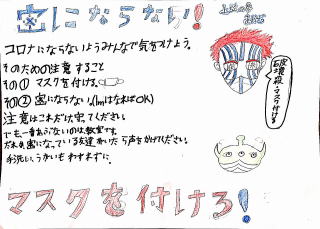 密にならない!
コロナにならないようみんなで気をつけよう。
そのための注意すること
その① マスクを付ける。
その② 密にならない。(1mはなればOK)
注意はこれだけ守ってください
でも一番あぶないのは教室です。
だれか密になっている友達がいたら声をかけてください。
手洗い、うがいもわすれずに。
破壊殺・マスク付ける
マスクを付けろ!